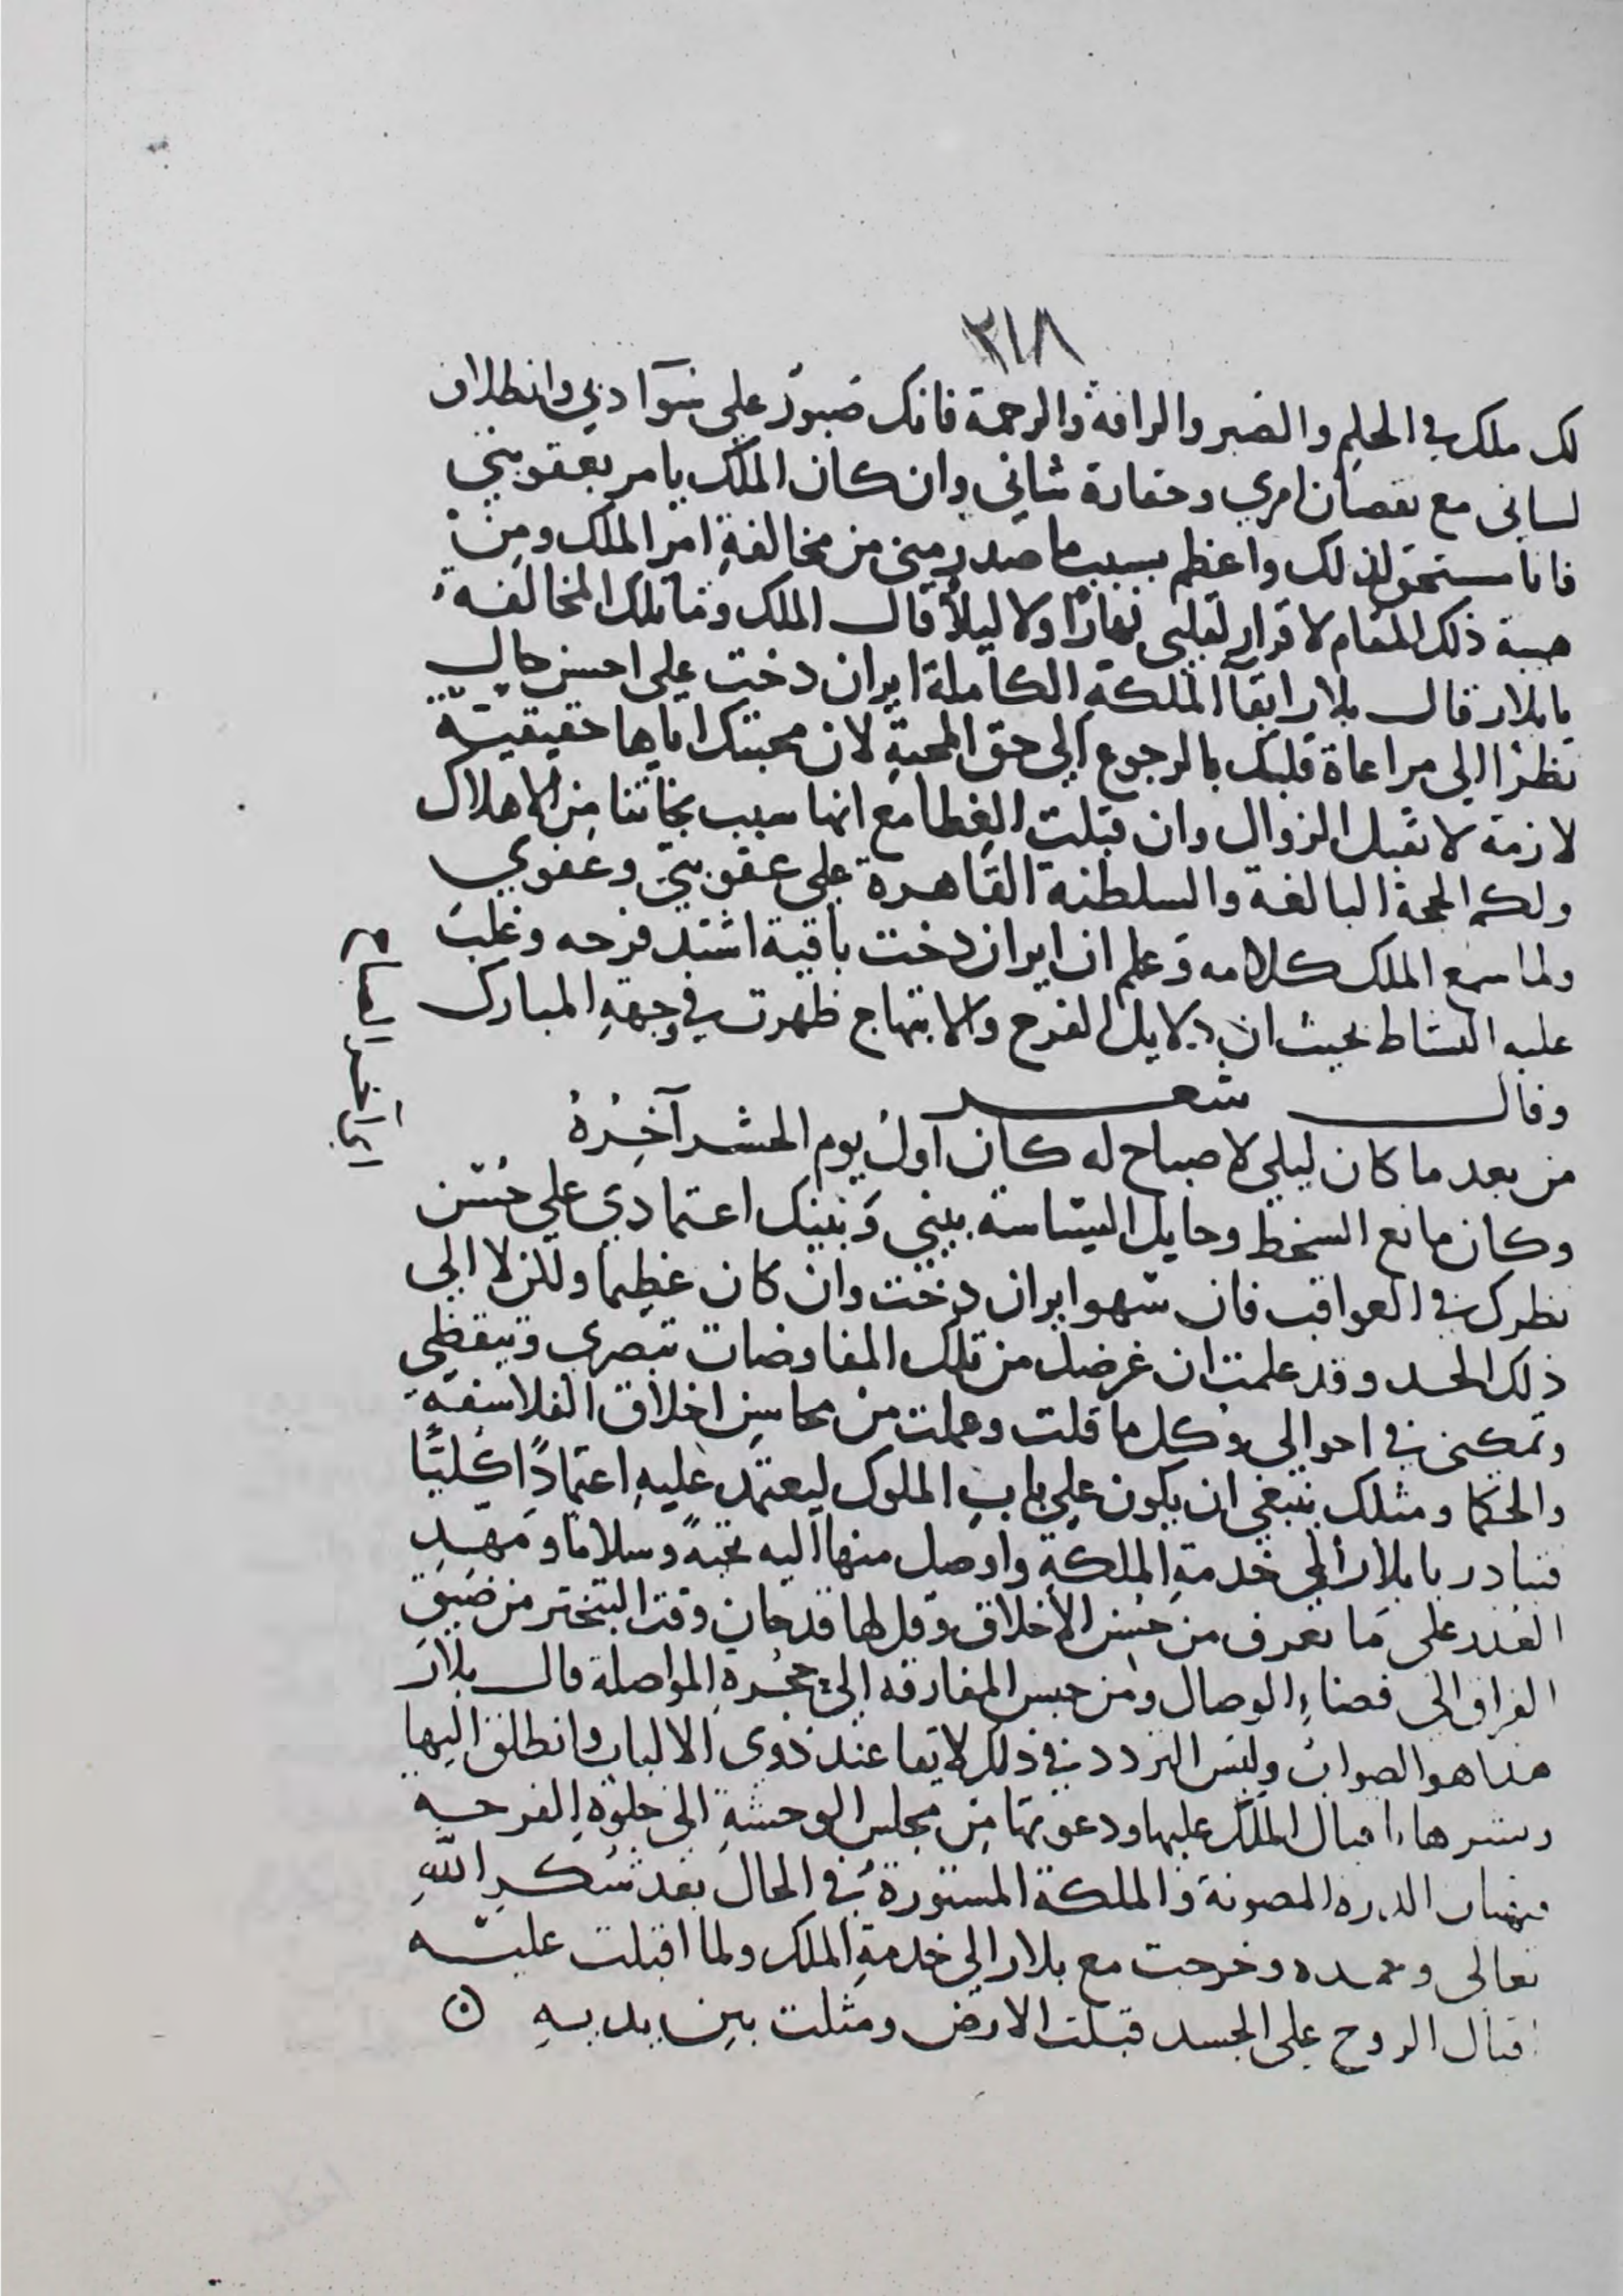 ٢١٨
لك ملك في الحلم والصبر والرافة والرحمة فانك صبور علي سوآ دبي وانطلاق
لساني مع نقصان امري وحقارة شاني وان كان الملك يامر بعقوبتي
فانا مستحق لذلك واعظم بسبب ما صدر مني من مخالفةِ امر الملك ومن
هيبة ذلك المقام لا قرار لقلبي نهارًا ولا ليلاً قال الملك وما تلك المخالفة
يا بلار قال بلار ابقآ الملكةِ الكاملة ايران دخت علي احسن حال
نظرًا الي مراعاة قلبك بالرجوع الي حق المحبةِ لان محبتك اياها حقيقيّة
لازمة لا تقبل الزوال وان قبلت الغطا مع انها سبب نجاتنا من الاهلاك
ولكم الحجة البالغة والسلطنة القاهرة علي عقوبتي وعفوي
ولما سمع الملك كلامه وعلم ان ايران دخت باقية اشتد فرحه وغلب
عليه النشاط بحيث ان دلايل الفرح والابتهاج ظهرت في وجههِ المبارك
وقال شعر
من بعد ما كان ليلي لا صباح له كان اول يوم الحشر آخِرُهُ
وكان مانع السخط وحايل السياسة بيني وبينك اعتمادي علي حُسْن
نظرك في العواقب فان سهو ايران دخت وان كان عظيما ولكن لا الي
ذلك الحد وقد علمت ان غرضك من تلك المفاوضات تبصري وتيقظي
وتمكني في احوالي وكل ما قلت وعملت من محاسن اخلاق الفلاسفةِ
والحكما ومثلك ينبغي ان يكون علي باب الملوك ليعتمد عليهِ اعتمادًا كليًّا
فبادر يا بلار الي خدمةِ الملكةِ واوصل منها اليه تحيةً وسلاما ومهد
العذر علي ما تعرف من حسن الاخلاق وقل لها قد حان وقت التبختر من ضيق
الفراق الي فضاءِ الوصال ومن حبس المفارقه الي حجرةِ المواصلة قال بلار
هذا هو الصواب وليس التردد في ذلك لايقا عند ذوي الالباب وانطلق اليها
وبشرها باقبال الملك عليها ودعوتها من مجلس الوحشةِ الي خلوةِ الفرحه
الدره المصونة والملكة المستورة في الحال بعد شكرِ اللّه
تعالي وحمده وخرجت مع بلار الي خدمةِ الملك ولما اقبلت عليه
اقبال الروح علي الجسد قبلت الارض ومثلت بين يديهِ